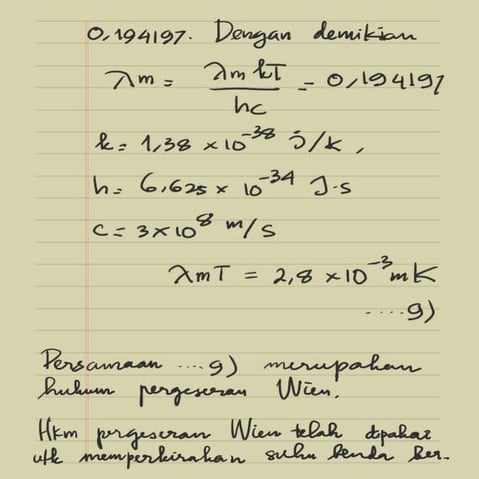 0,194197. Dengan demikian
λm = λm kT / hc = 0,194197
k = 1,38 × 10⁻³⁸ J/K,
h = 6,625 × 10⁻³⁴ J·s
c = 3 × 10⁸ m/s
λmT = 2,8 × 10⁻³ mK
....9)
Persamaan ....9) merupakan
hukum pergeseran Wien.
Hkm prgeseran Wien telah dpakai
utk memperkirakan suhu benda ber-